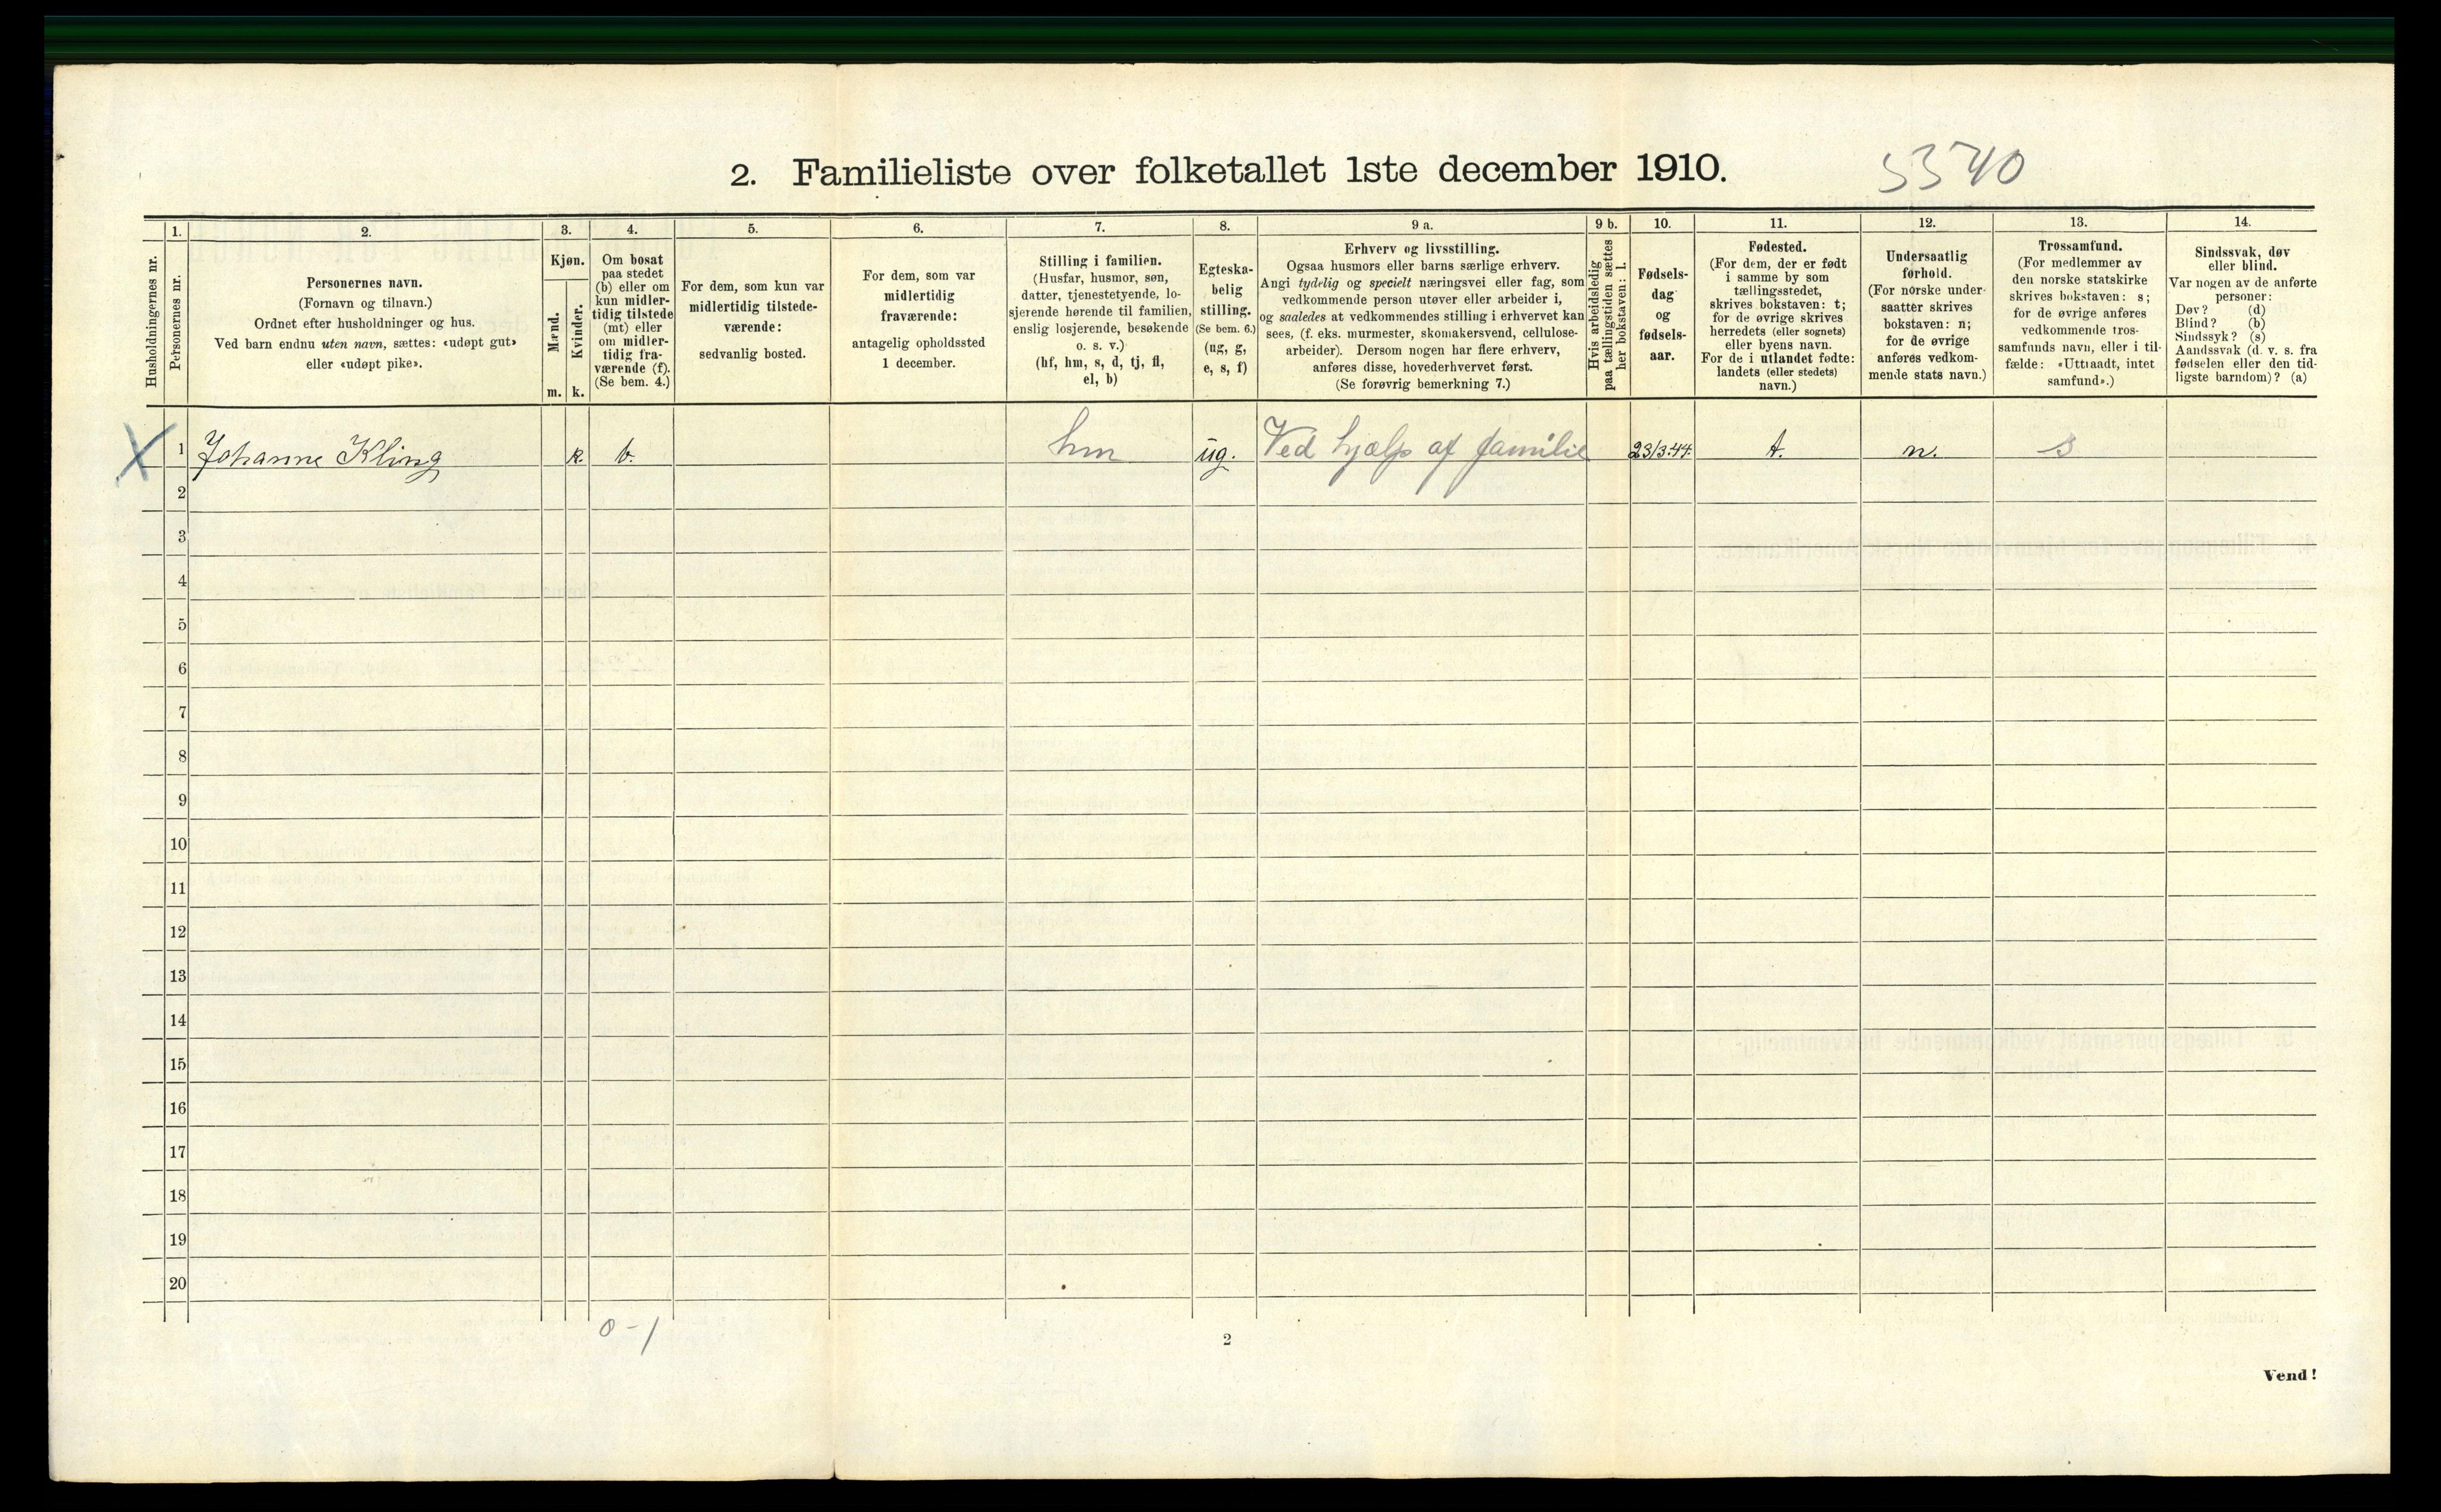 2. Familieliste over folketallet 1ste december 1910.
5340
Husholdningernes nr.
1.
Personernes nr.
2.
Personernes navn.
(Fornavn og tilnavn.)
Ordnet efter husholdninger og hus.
Ved barn endnu uten navn, sættes: «udøpt gut»
eller «udøpt pike».
3.
Kjøn.
Mænd.
m.
Kvinder.
k.
4.
Om bosat
paa stedet
(b) eller om
kun midler-
tidig tilstede
(mt) eller
om midler-
tidig fra-
værende (f).
(Se bem. 4.)
5.
For dem, som kun var
midlertidig tilstede-
værende:
sedvanlig bosted.
6.
For dem, som var
midlertidig
fraværende:
antagelig opholdssted
1 december.
7.
Stilling i familien.
(Husfar, husmor, søn,
datter, tjenestetyende, lo-
sjerende hørende til familien,
enslig losjerende, besøkende
o. s. v.)
(hf, hm, s, d, tj, fl,
el, b)
8.
Egteska-
belig
stilling.
(Se bem. 6.)
(ug, g,
e, s, f)
9 a.
Erhverv og livsstilling.
Ogsaa husmors eller barns særlige erhverv.
Angi tydelig og specielt næringsvei eller fag, som
vedkommende person utøver eller arbeider i,
og saaledes at vedkommendes stilling i erhvervet kan
sees, (f. eks. murmester, skomakersvend, cellulose-
arbeider). Dersom nogen har flere erhverv,
anføres disse, hovederhvervet først.
(Se forøvrig bemerkning 7.)
9 b.
Hvis arbeidsledig
paa tællingstiden sættes
her bokstaven: l.
10.
Fødsels-
dag
og
fødsels-
aar.
11.
Fødested.
(For dem, der er født
i samme by som
tællingsstedet,
skrives bokstaven: t;
for de øvrige skrives
herredets (eller sognets)
eller byens navn.
For de i utlandet fødte:
landets (eller stedets)
navn.)
12.
Undersaatlig
forhold.
(For norske under-
saatter skrives
bokstaven: n;
for de øvrige
anføres vedkom-
mende stats navn.)
13.
Trossamfund.
(For medlemmer av
den norske statskirke
skrives bokstaven: s;
for de øvrige anføres
vedkommende tros-
samfunds navn, eller i til-
fælde: «Uttraadt, intet
samfund».)
14.
Sindssvak, døv
eller blind.
Var nogen av de anførte
personer:
Døv? (d)
Blind? (b)
Sindssyk? (s)
Aandssvak (d. v. s. fra
fødselen eller den tid-
ligste barndom)? (a)
X 1 Johanne Kling k. b. hm ug. Ved hjælp af familie 23/3.44. t. n. s
2
3
4
5
6
7
8
9
10
11
12
13
14
15
16
17
18
19
20
0-1
2
Vend!